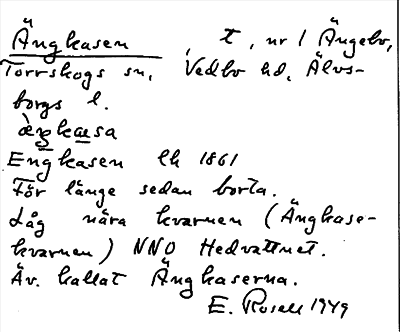 Ängkasen, t, nr 1 Ängebo,
Torrskogs sn, Vedbo hd, Älvs-
borgs l.
Engkasen lk 1861
För länge sedan borta.
Låg nära kvarnen (Ängkase-
kvarnen) NNO Hedvattnet.
Äv. kallat Ängkaserna.
E. Rosell 1949